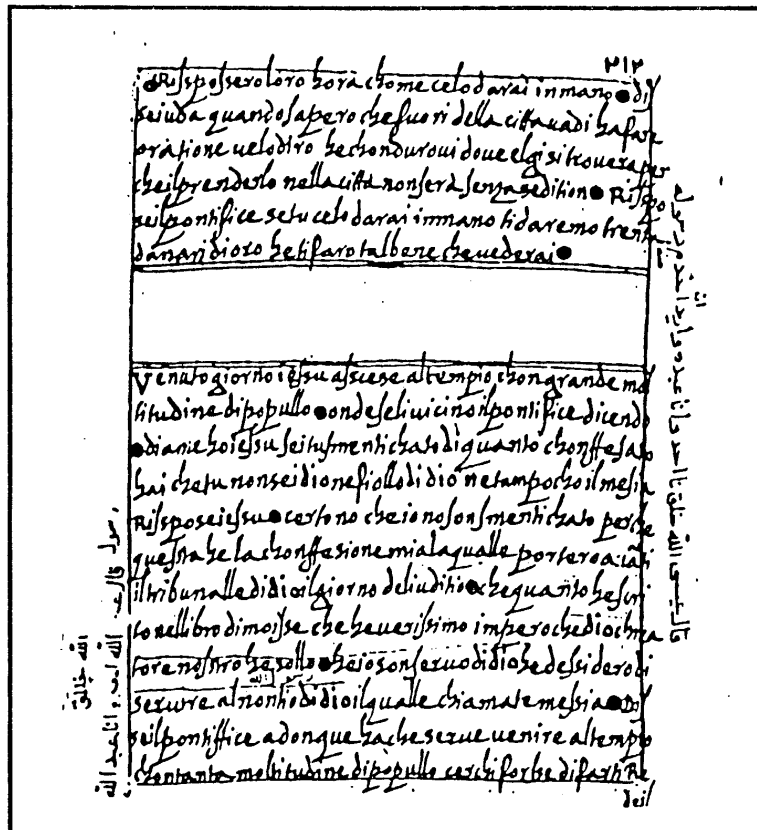 ٢١٢
Risspossero loro hora chome celo darai in mano disf
se iuda quando sapero che fuori della citta uadi ha fare
oratione uelo diro he chonduroui doue elgi si trouera per
che il prenderlo nella citta non sera senza seditione Risspo
se il pontifice se tu celo darai in mano ti daremo trenta
danari di oro he ti faro tal bene che uederai
Venuto giorno iessu asscese al tempio chon grande mol
titudine di popullo onde seli uicino il pontifice dicendo
dimi ho iessu sei tu smentichato di quanto chonffesato
hai che tu non sei dio ne fiollo di dio ne tampocho il mesia
Risspose iessu certo no che io no son smentichato perche
questa he la chonffesione mia la qualle portero auāti
il tribunalle di dio il giorno del iuditio che quanto he scri
to nel libro di moisse che he uerissimo impero che dio chrea
tore nosstro he sollo he io son seruo di dio he dessidero di
seruire al nontio di dio il qualle chiamate messia Dis
se il pontiffice adonque ha che serue uenire al tempio
chon tanta moltitudine di popullo cerchi forse di farti Re
deil
قال عيسى الله خلقنا احد و انا عبده و اريد اخدم رسوله
الله خالق